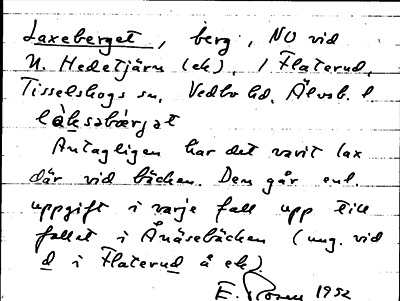 Laxeberget, berg, NO vid
N. Hedetjärn (ek), i Flaterud,
Tisselskogs sn, Vedbo hd, Älvsb. l
làksabærjat
Antagligen har det varit lax
där vid bäcken. Den går enl.
uppgift i varje fall upp till
fallet i Ånäsebäcken (ung. vid
d i Flaterud å ek).
E. Rosén 1932